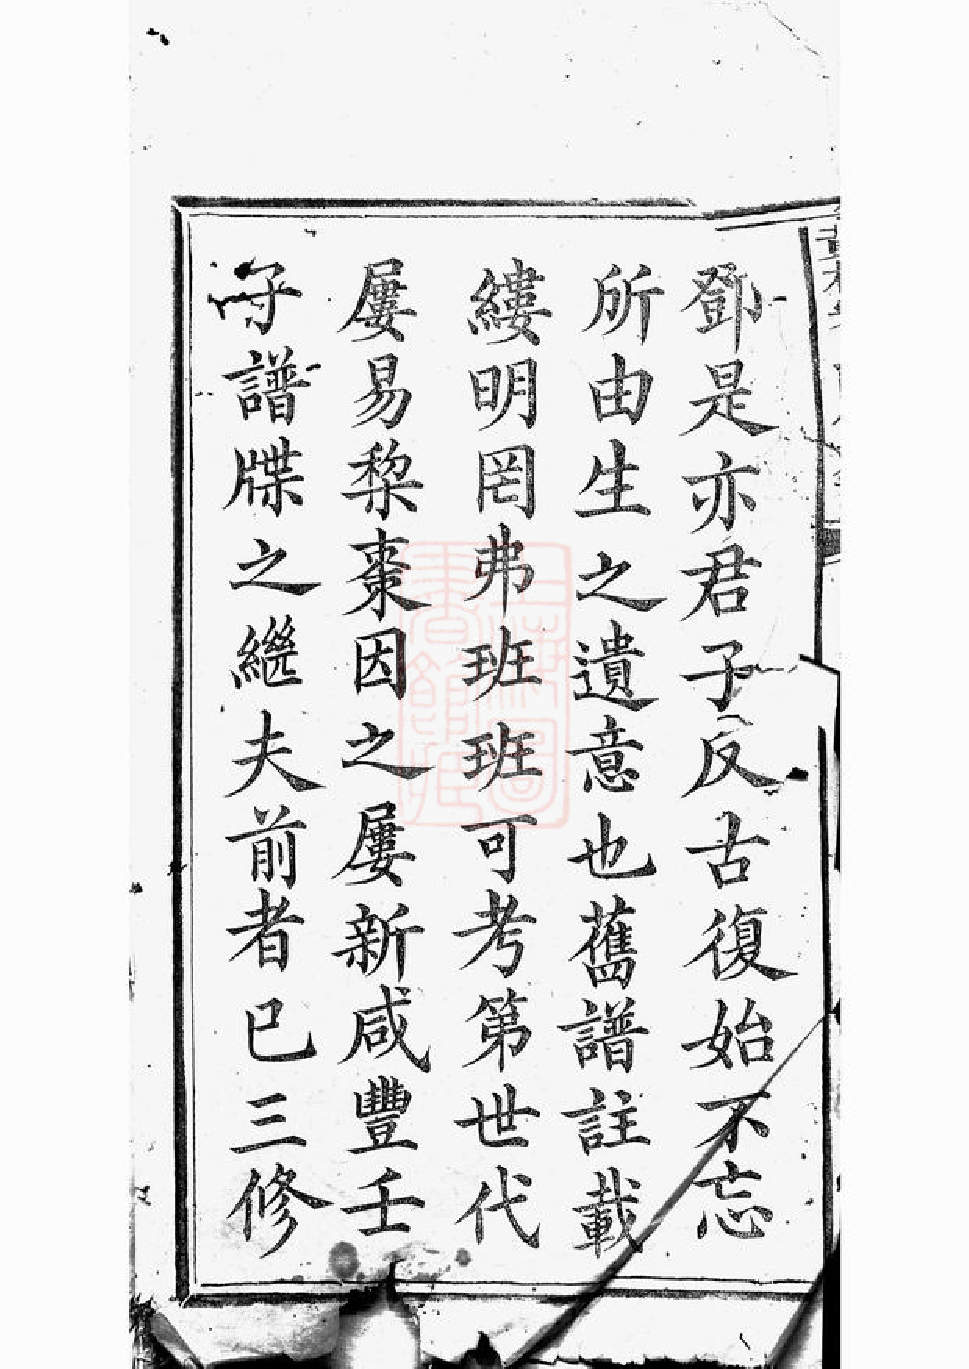 鄧是亦君子反古復始不忘
所由生之遺意也舊譜註載
縷明罔弗班班可考第世代
屢易棃棗因之屢新咸豐壬
子譜牒之繼夫前者已三修